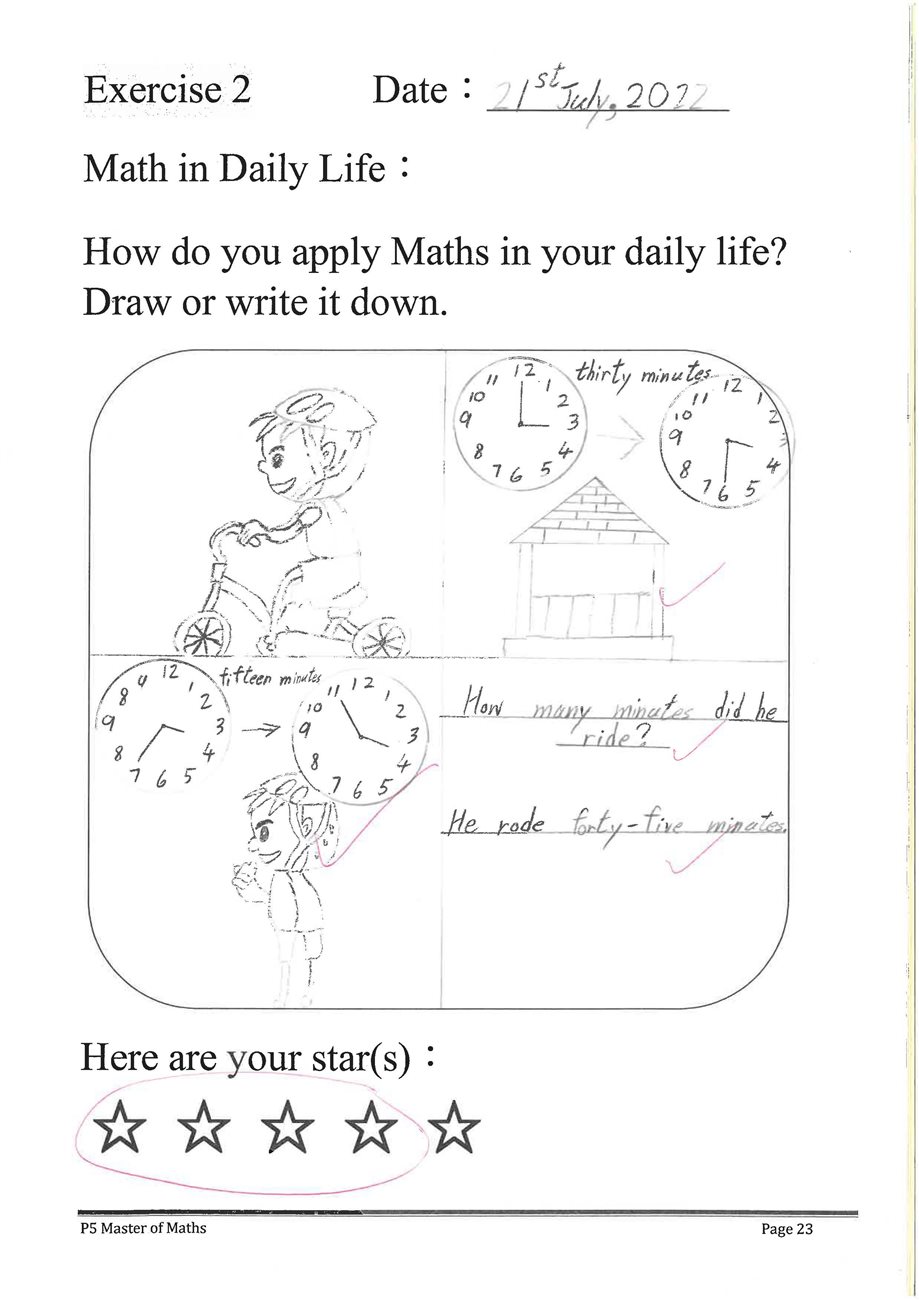 Exercise 2 Date : 21st July, 2022
Math in Daily Life :
How do you apply Maths in your daily life?
Draw or write it down.
12 1 2 3 4 5 6 7 8 9 10 11
thirty minutes
12 1 2 3 4 5 6 7 8 9 10 11
12 1 2 3 4 5 6 7 8 9
fifteen minutes
12 1 2 3 4 5 6 7 8 9 10 11
How many minutes did he
ride?
He rode forty-five minutes.
Here are your star(s) :
P5 Master of Maths Page 23